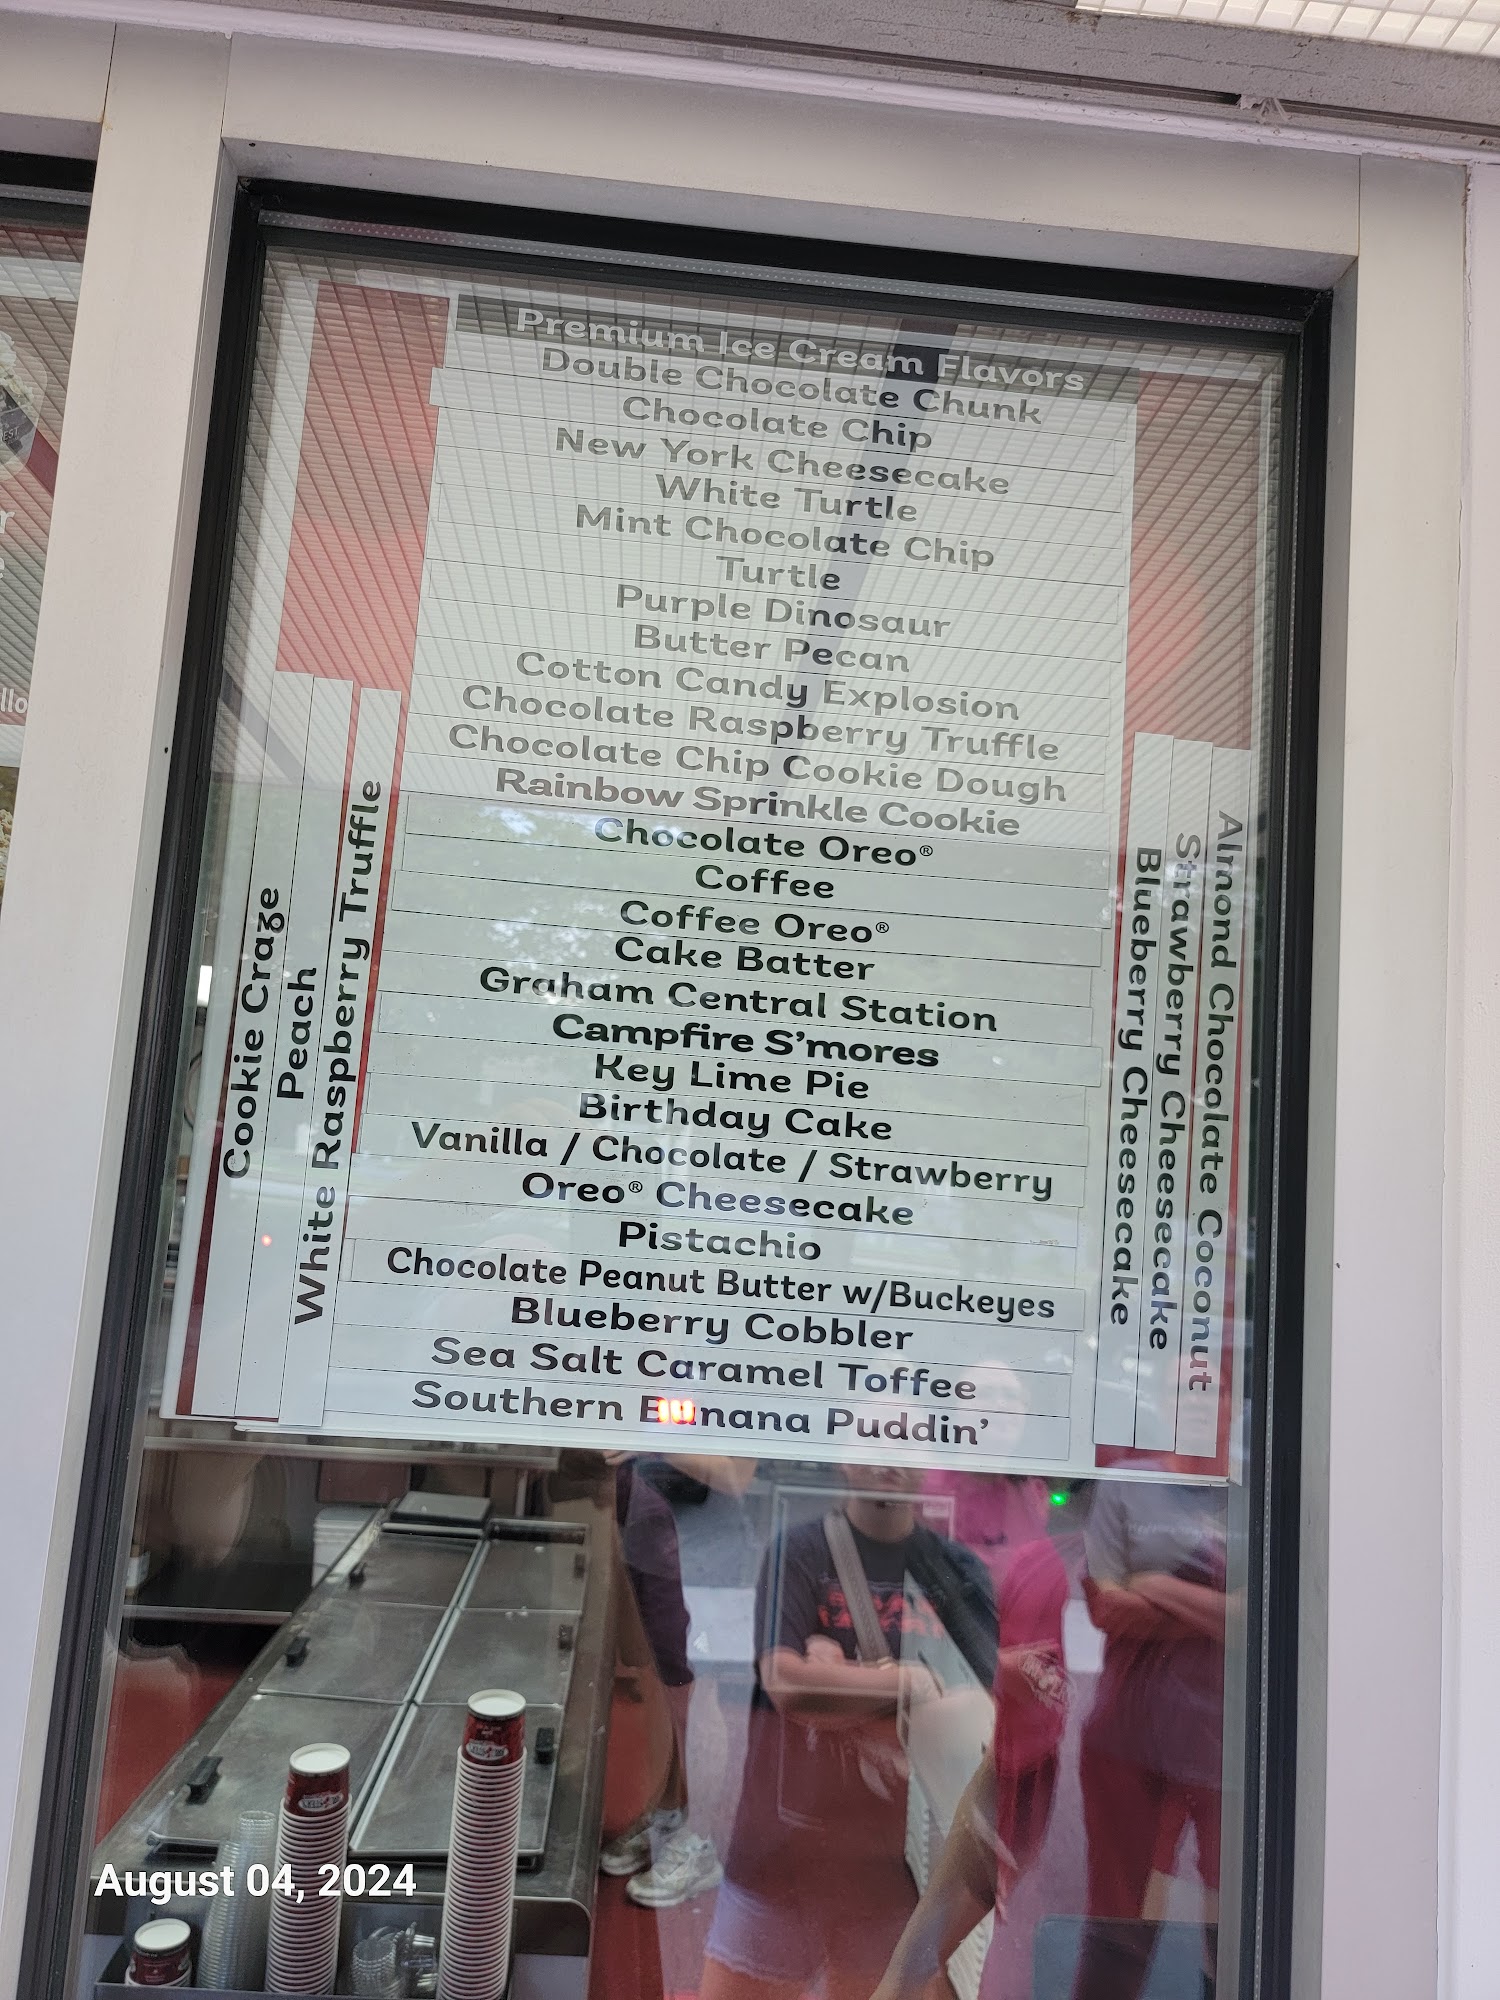 Premium Ice Cream Flavors
Double Chocolate Chunk
Chocolate Chip
New York Cheesecake
White Turtle
Mint Chocolate Chip
Turtle
Purple Dinosaur
Butter Pecan
Cotton Candy Explosion
Chocolate Raspberry Truffle
Chocolate Chip Cookie Dough
Rainbow Sprinkle Cookie
Chocolate Oreo®
Coffee
Coffee Oreo®
Cake Batter
Graham Central Station
Campfire S'mores
Key Lime Pie
Birthday Cake
Vanilla / Chocolate / Strawberry
Oreo® Cheesecake
Pistachio
Chocolate Peanut Butter w/Buckeyes
Blueberry Cobbler
Sea Salt Caramel Toffee
Southern Banana Puddin'
Cookie Craze
Peach
White Raspberry Truffle
Almond Chocolate Coconut
Strawberry Cheesecake
Blueberry Cheesecake
August 04, 2024